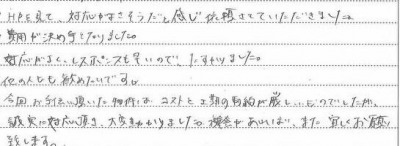 HPを見て、対応がよさそうだと感じ依頼させていただきました。
費用が決め手となりました。
対応がよく、レスポンスも早いので、たすかりました。
他の人にも勧めたいです。
今回お手伝い頂いた物件は、コストと工期の制約が厳しいものでしたが、
誠実に対応頂き、大変たすかりました。機会があれば、また宜しくお願い
致します。